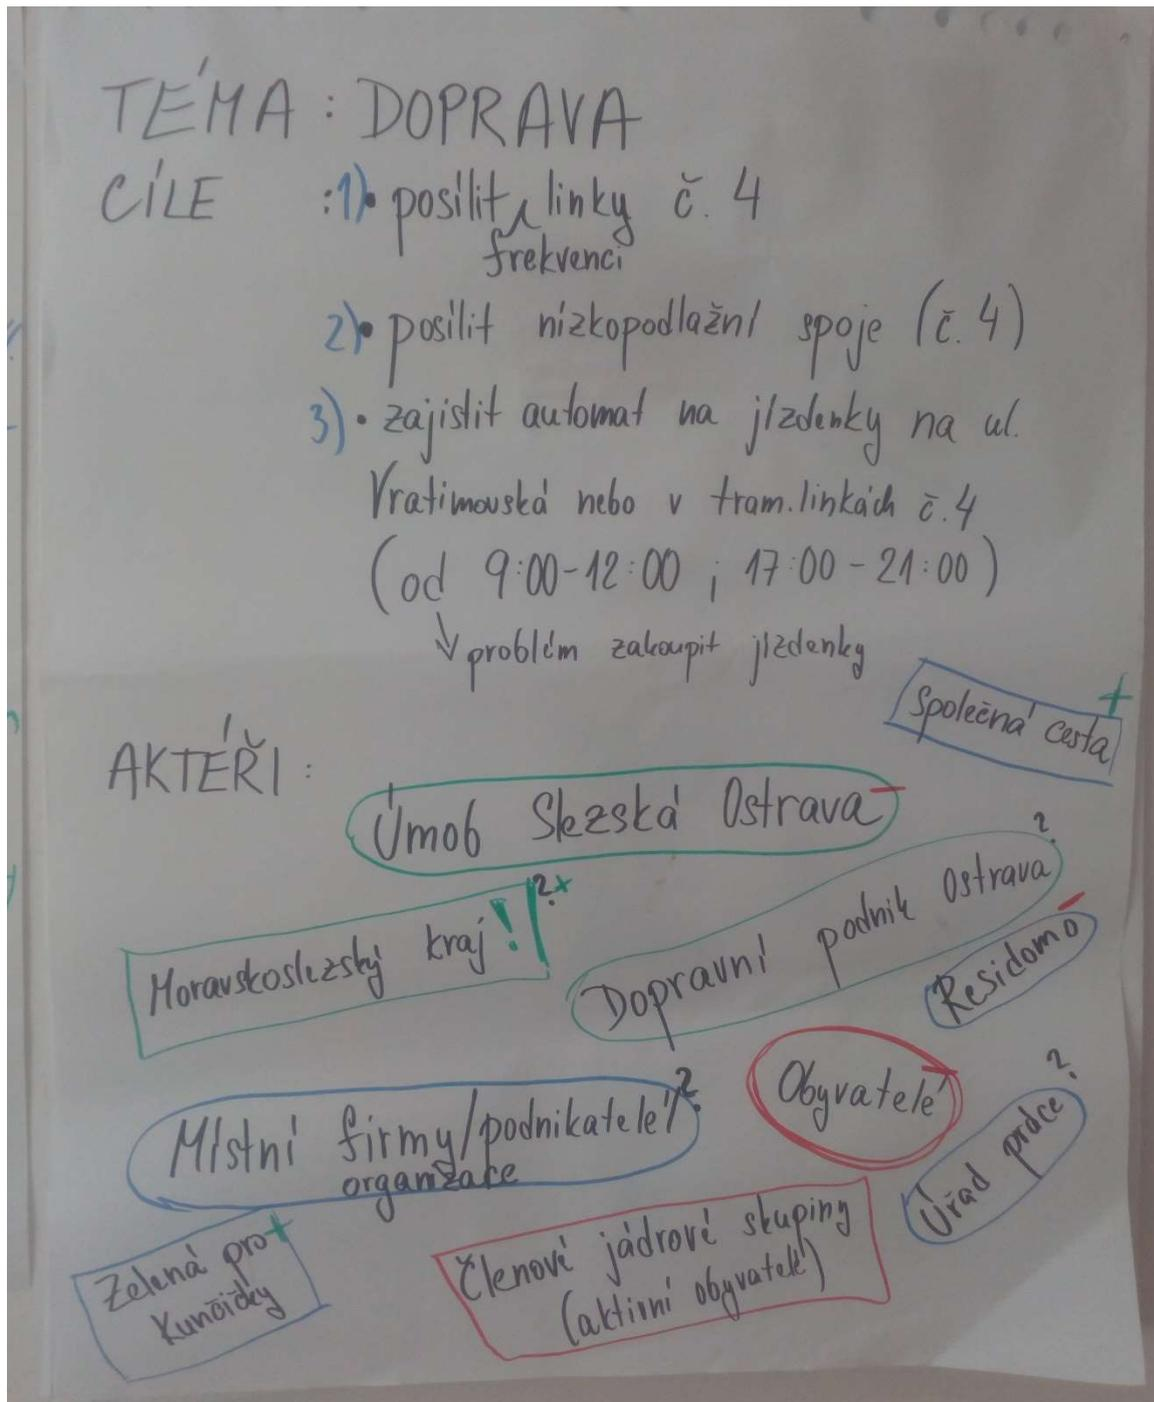 TÉMA : DOPRAVA
CÍLE :1)• posílit linky č. 4
frekvenci
2)• posílit nízkopodlažní spoje (č. 4)
3)• zajistit automat na jízdenky na ul.
Vratimovská nebo v tram.linkách č.4
(od 9:00-12:00 ; 17:00-21:00)
↓ problém zakoupit jízdenky
Společná cesta +
AKTÉŘI :
Úmob Slezská Ostrava -
Moravskoslezský kraj ! ? +
Dopravní podnik Ostrava ?
Residomo -
Místní firmy/podnikatelé/ ?
organizace
Obyvatelé -
Úřad práce ?
Zelená pro +
Kunčičky
Členové jádrové skupiny
(aktivní obyvatelé)